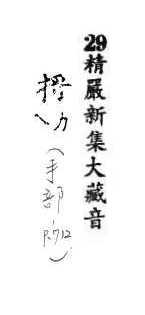 29精嚴新集大藏音
(手部 P.712)